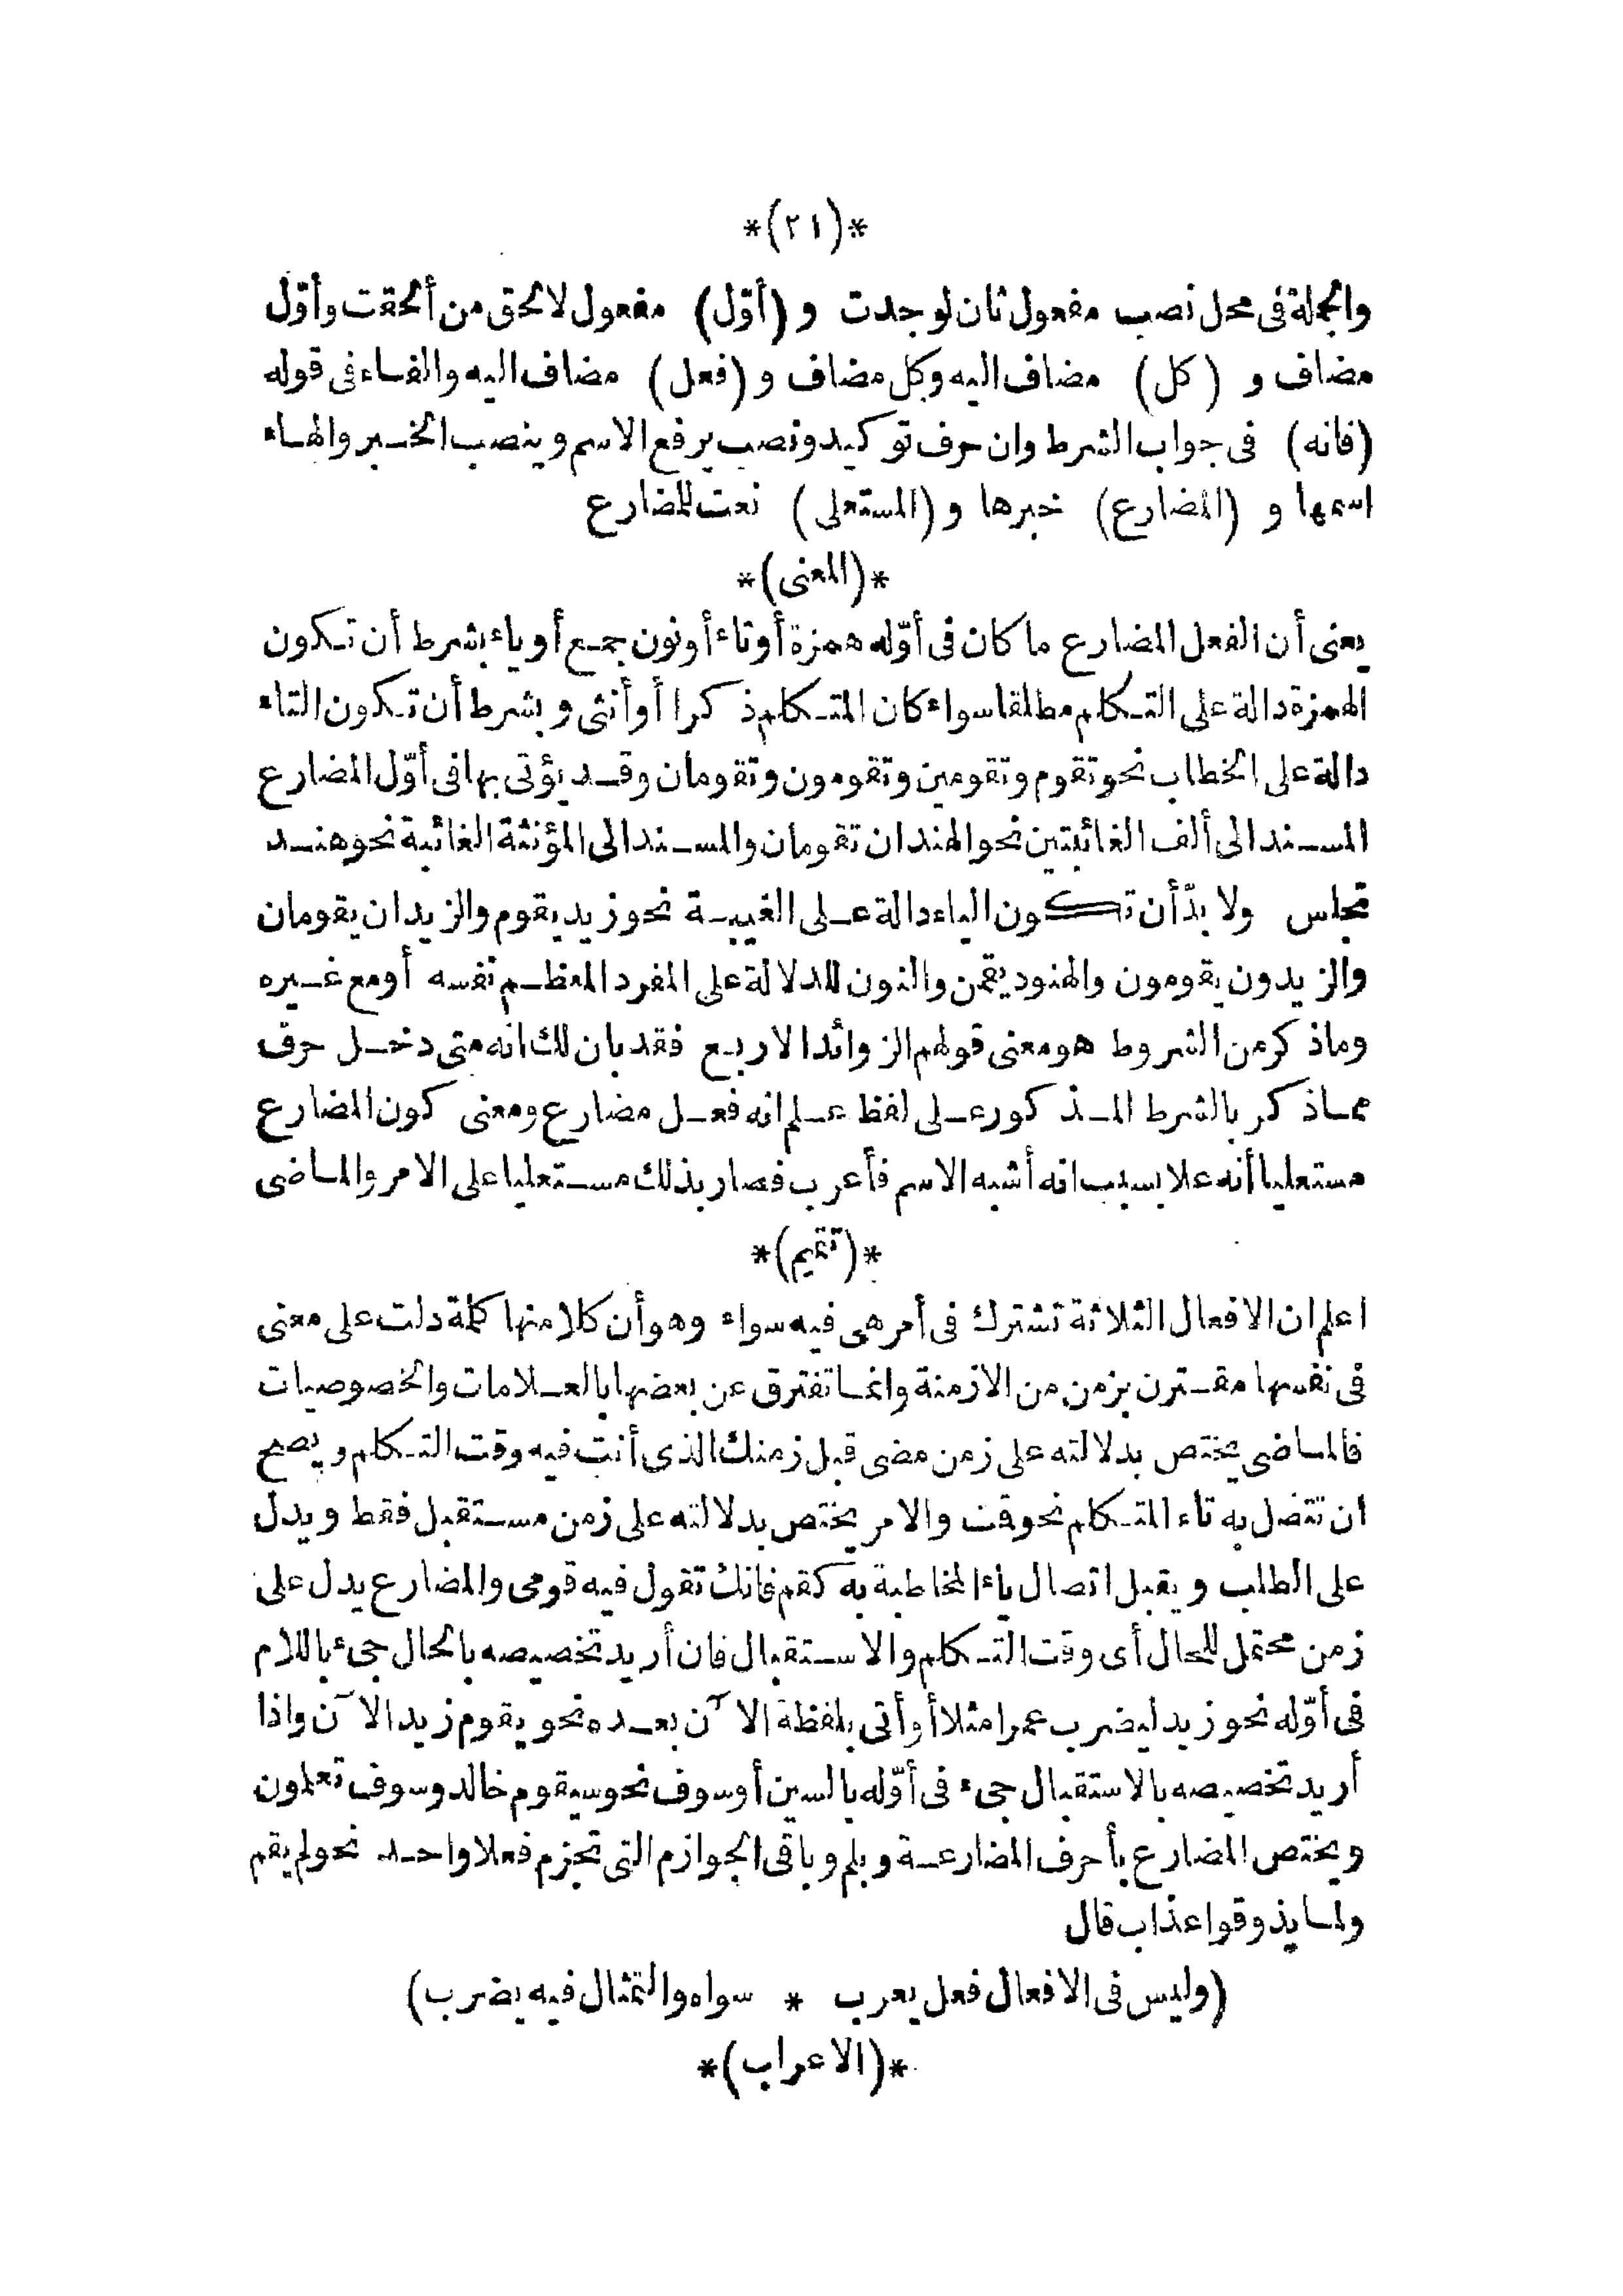 *(٢١)*
والجملة فى محل نصب مفعول ثان لوجدت و (أوّل) مفعول لالحق من ألحقت وأوّل
مضاف و (كل) مضاف اليه وكل مضاف و (فعل) مضاف اليه والفاء فى قوله
(فانه) فى جواب الشرط وان حرف توكيد ونصب يرفع الاسم وينصب الخبر والهاء
اسمها و (المضارع) خبرها و (المستعلى) نعت للمضارع
*(المعنى)*
يعنى أن الفعل المضارع ما كان فى أوّله همزة أوتاء أونون جمع أوياء بشرط أن تكون
الهمزة دالة على التكلم مطلقا سواء كان المتكلم ذكرا أو أنثى وبشرط أن تكون التاء
دالة على الخطاب نحو تقوم وتقومين وتقومون وتقومان وقد يؤتى بها فى أوّل المضارع
المسند الى ألف الغائبتين نحو الهندان تقومان والمسند الى المؤنثة الغائبة نحو هند
تجلس ولا بدّ أن تكون الياء دالة على الغيبة نحو زيد يقوم والزيدان يقومان
والزيدون يقومون والهنود يقمن والنون للدلالة على المفرد المعظم نفسه أو مع غيره
وماذكر من الشروط هو معنى قولهم الزوائد الاربع فقد بان لك انه متى دخل حرف
مماذكر بالشرط المذكور على لفظ علم انه فعل مضارع ومعنى كون المضارع
مستعليا أنه علا بسبب انه أشبه الاسم فأعرب فصار بذلك مستعليا على الامر والماضى
*(تقيم)*
اعلم ان الافعال الثلاثة تشترك فى أمر هى فيه سواء وهو أن كلا منها كلمة دلت على معنى
فى نفسها مقترن بزمن من الازمنة وانما تفترق عن بعضها بالعلامات والخصوصيات
فالماضى يختص بدلالته على زمن مضى قبل زمنك الذى أنت فيه وقت التكلم ويصح
ان تتصل به تاء المتكلم نحو قت والامر يختص بدلالته على زمن مستقبل فقط ويدل
على الطلب ويقبل اتصال ياء المخاطبة به كقم فانك تقول فيه قومى والمضارع يدل على
زمن محتمل للحال أى وقت التكلم والاستقبال فان أريد تخصيصه بالحال جىء باللام
فى أوّله نحو زيد ليضرب عمرا مثلا أو أتى بلفظة الآن بعده نحو يقوم زيد الآن واذا
أريد تخصيصه بالاستقبال جىء فى أوّله بالسين أوسوف نحو سيقوم خالد وسوف تعلمون
ويختص المضارع بأحرف المضارعة وبلم وباقى الجوازم التى تجزم فعلا واحد نحو لم يقم
ولما يذوقوا عذاب قال
(وليس فى الافعال فعل يعرب * سواه والتمثال فيه يضرب)
*(الاعراب)*